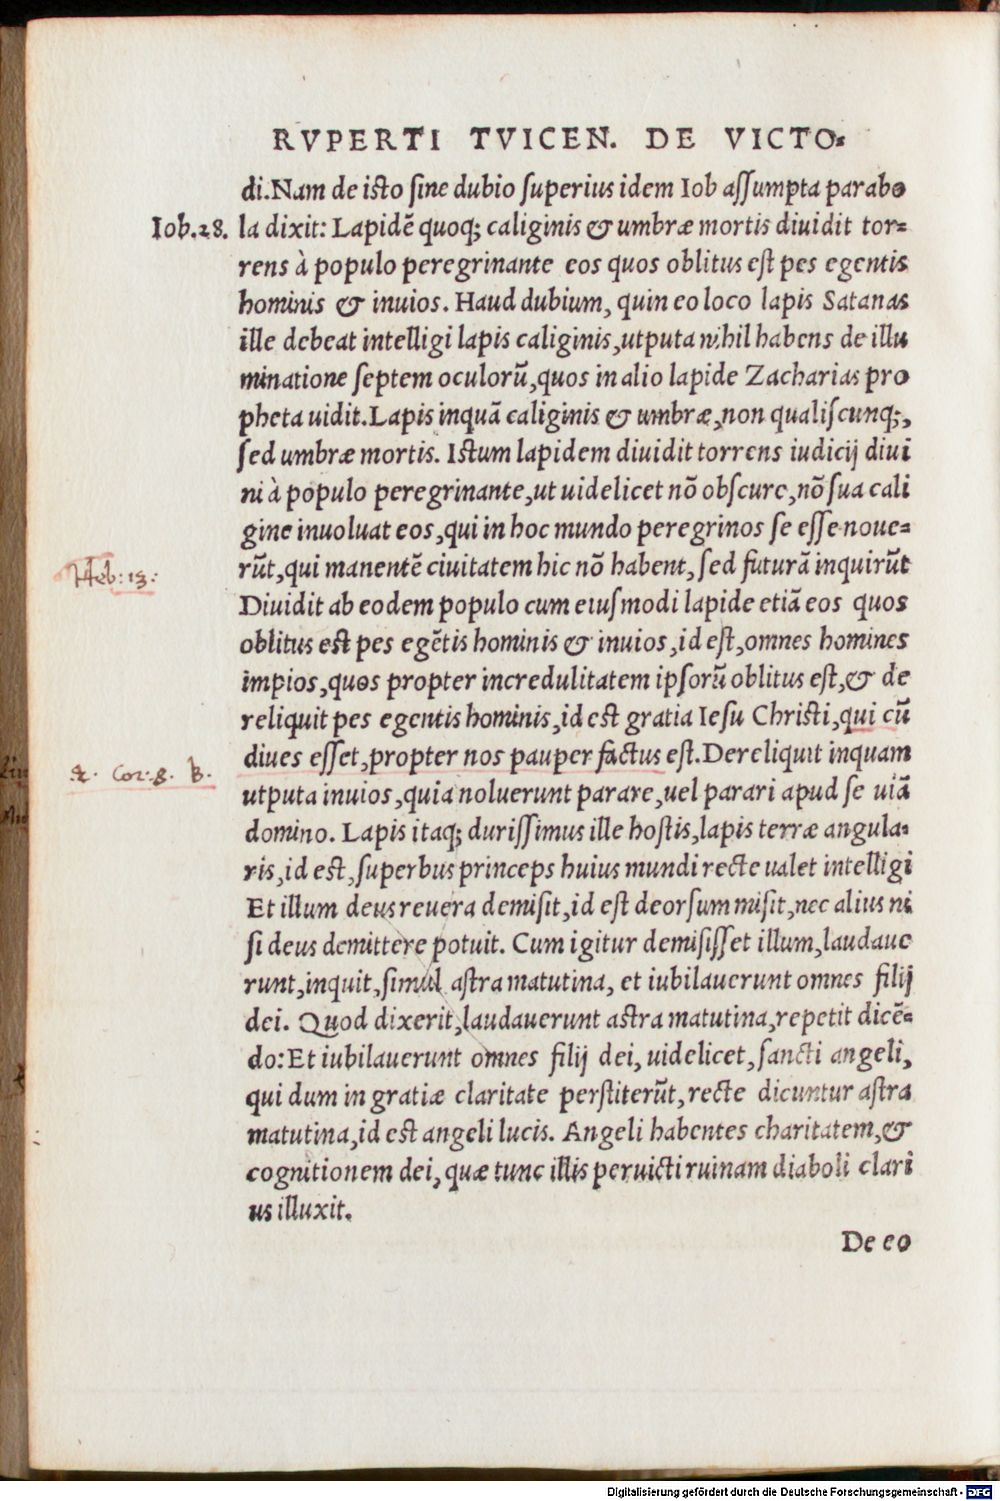 RVPERTI TVICEN. DE VICTO-
di. Nam de isto sine dubio superius idem Iob assumpta parabo
Iob.28.
la dixit: Lapidē quoq; caliginis & umbræ mortis diuidit tor=
rens à populo peregrinante eos quos oblitus est pes egentis
hominis & inuios. Haud dubium, quin eo loco lapis Satanas
ille debeat intelligi lapis caliginis, utputa nihil habens de illu
minatione septem oculorū, quos in alio lapide Zacharias pro
pheta uidit. Lapis inquā caliginis & umbræ, non qualiscunq;,
sed umbræ mortis. Istum lapidem diuidit torrens iudicij diui
ni à populo peregrinante, ut uidelicet nō obscure, nō sua cali
gine inuoluat eos, qui in hoc mundo peregrinos se esse noue=
rūt, qui manentē ciuitatem hic nō habent, sed futurā inquirūt
Heb: 13:
Diuidit ab eodem populo cum eiusmodi lapide etiā eos quos
oblitus est pes egētis hominis & inuios, id est, omnes homines
impios, quos propter incredulitatem ipsorū oblitus est, & de
reliquit pes egentis hominis, id est gratia Iesu Christi, qui cū
diues esset, propter nos pauper factus est. Dereliquit inquam
2. Cor: 8. B.
utputa inuios, quia noluerunt parare, uel parari apud se uiā
domino. Lapis itaq; durissimus ille hostis, lapis terræ angula-
ris, id est, superbus princeps huius mundi recte ualet intelligi
Et illum deus reuera demisit, id est deorsum misit, nec alius ni
si deus demittere potuit. Cum igitur demisisset illum, laudaue
runt, inquit, simul astra matutina, et iubilauerunt omnes filij
dei. Quod dixerit, laudauerunt astra matutina, repetit dicē=
do: Et iubilauerunt omnes filij dei, uidelicet, sancti angeli,
qui dum in gratiæ claritate perstiterūt, recte dicuntur astra
matutina, id est angeli lucis. Angeli habentes charitatem, &
cognitionem dei, quæ tunc illis per uicti ruinam diaboli clari
us illuxit.
De eo
Digitalisierung gefördert durch die Deutsche Forschungsgemeinschaft - DFG